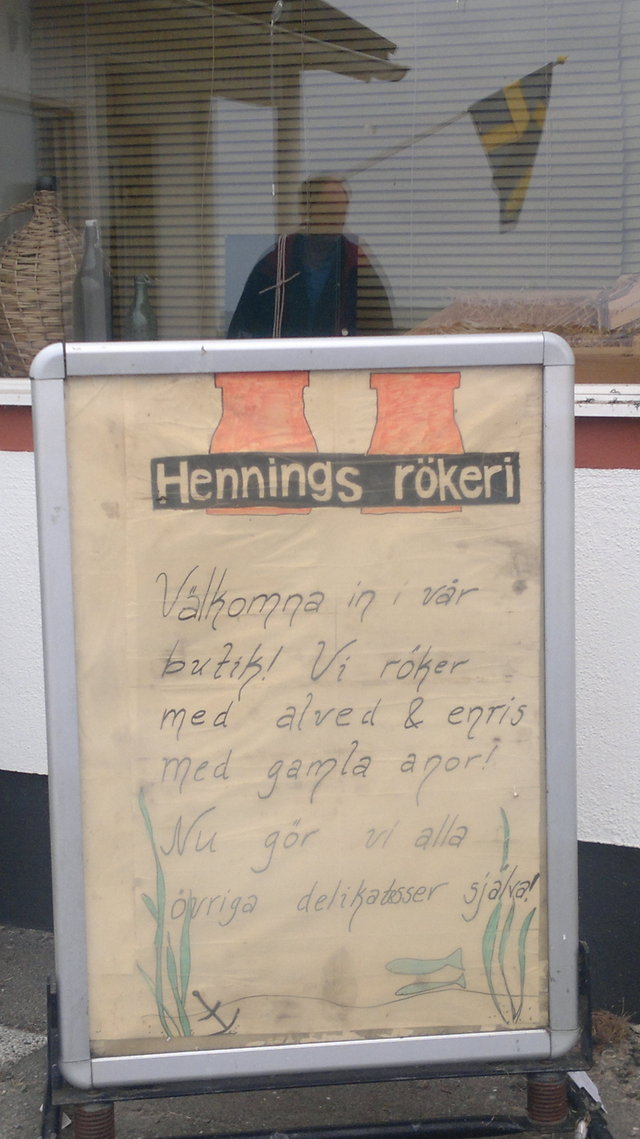 Hennings rökeri
Välkomna in i vår
butik! Vi röker
med alved & enris
med gamla anor!
Nu gör vi alla
övriga delikatesser själva!